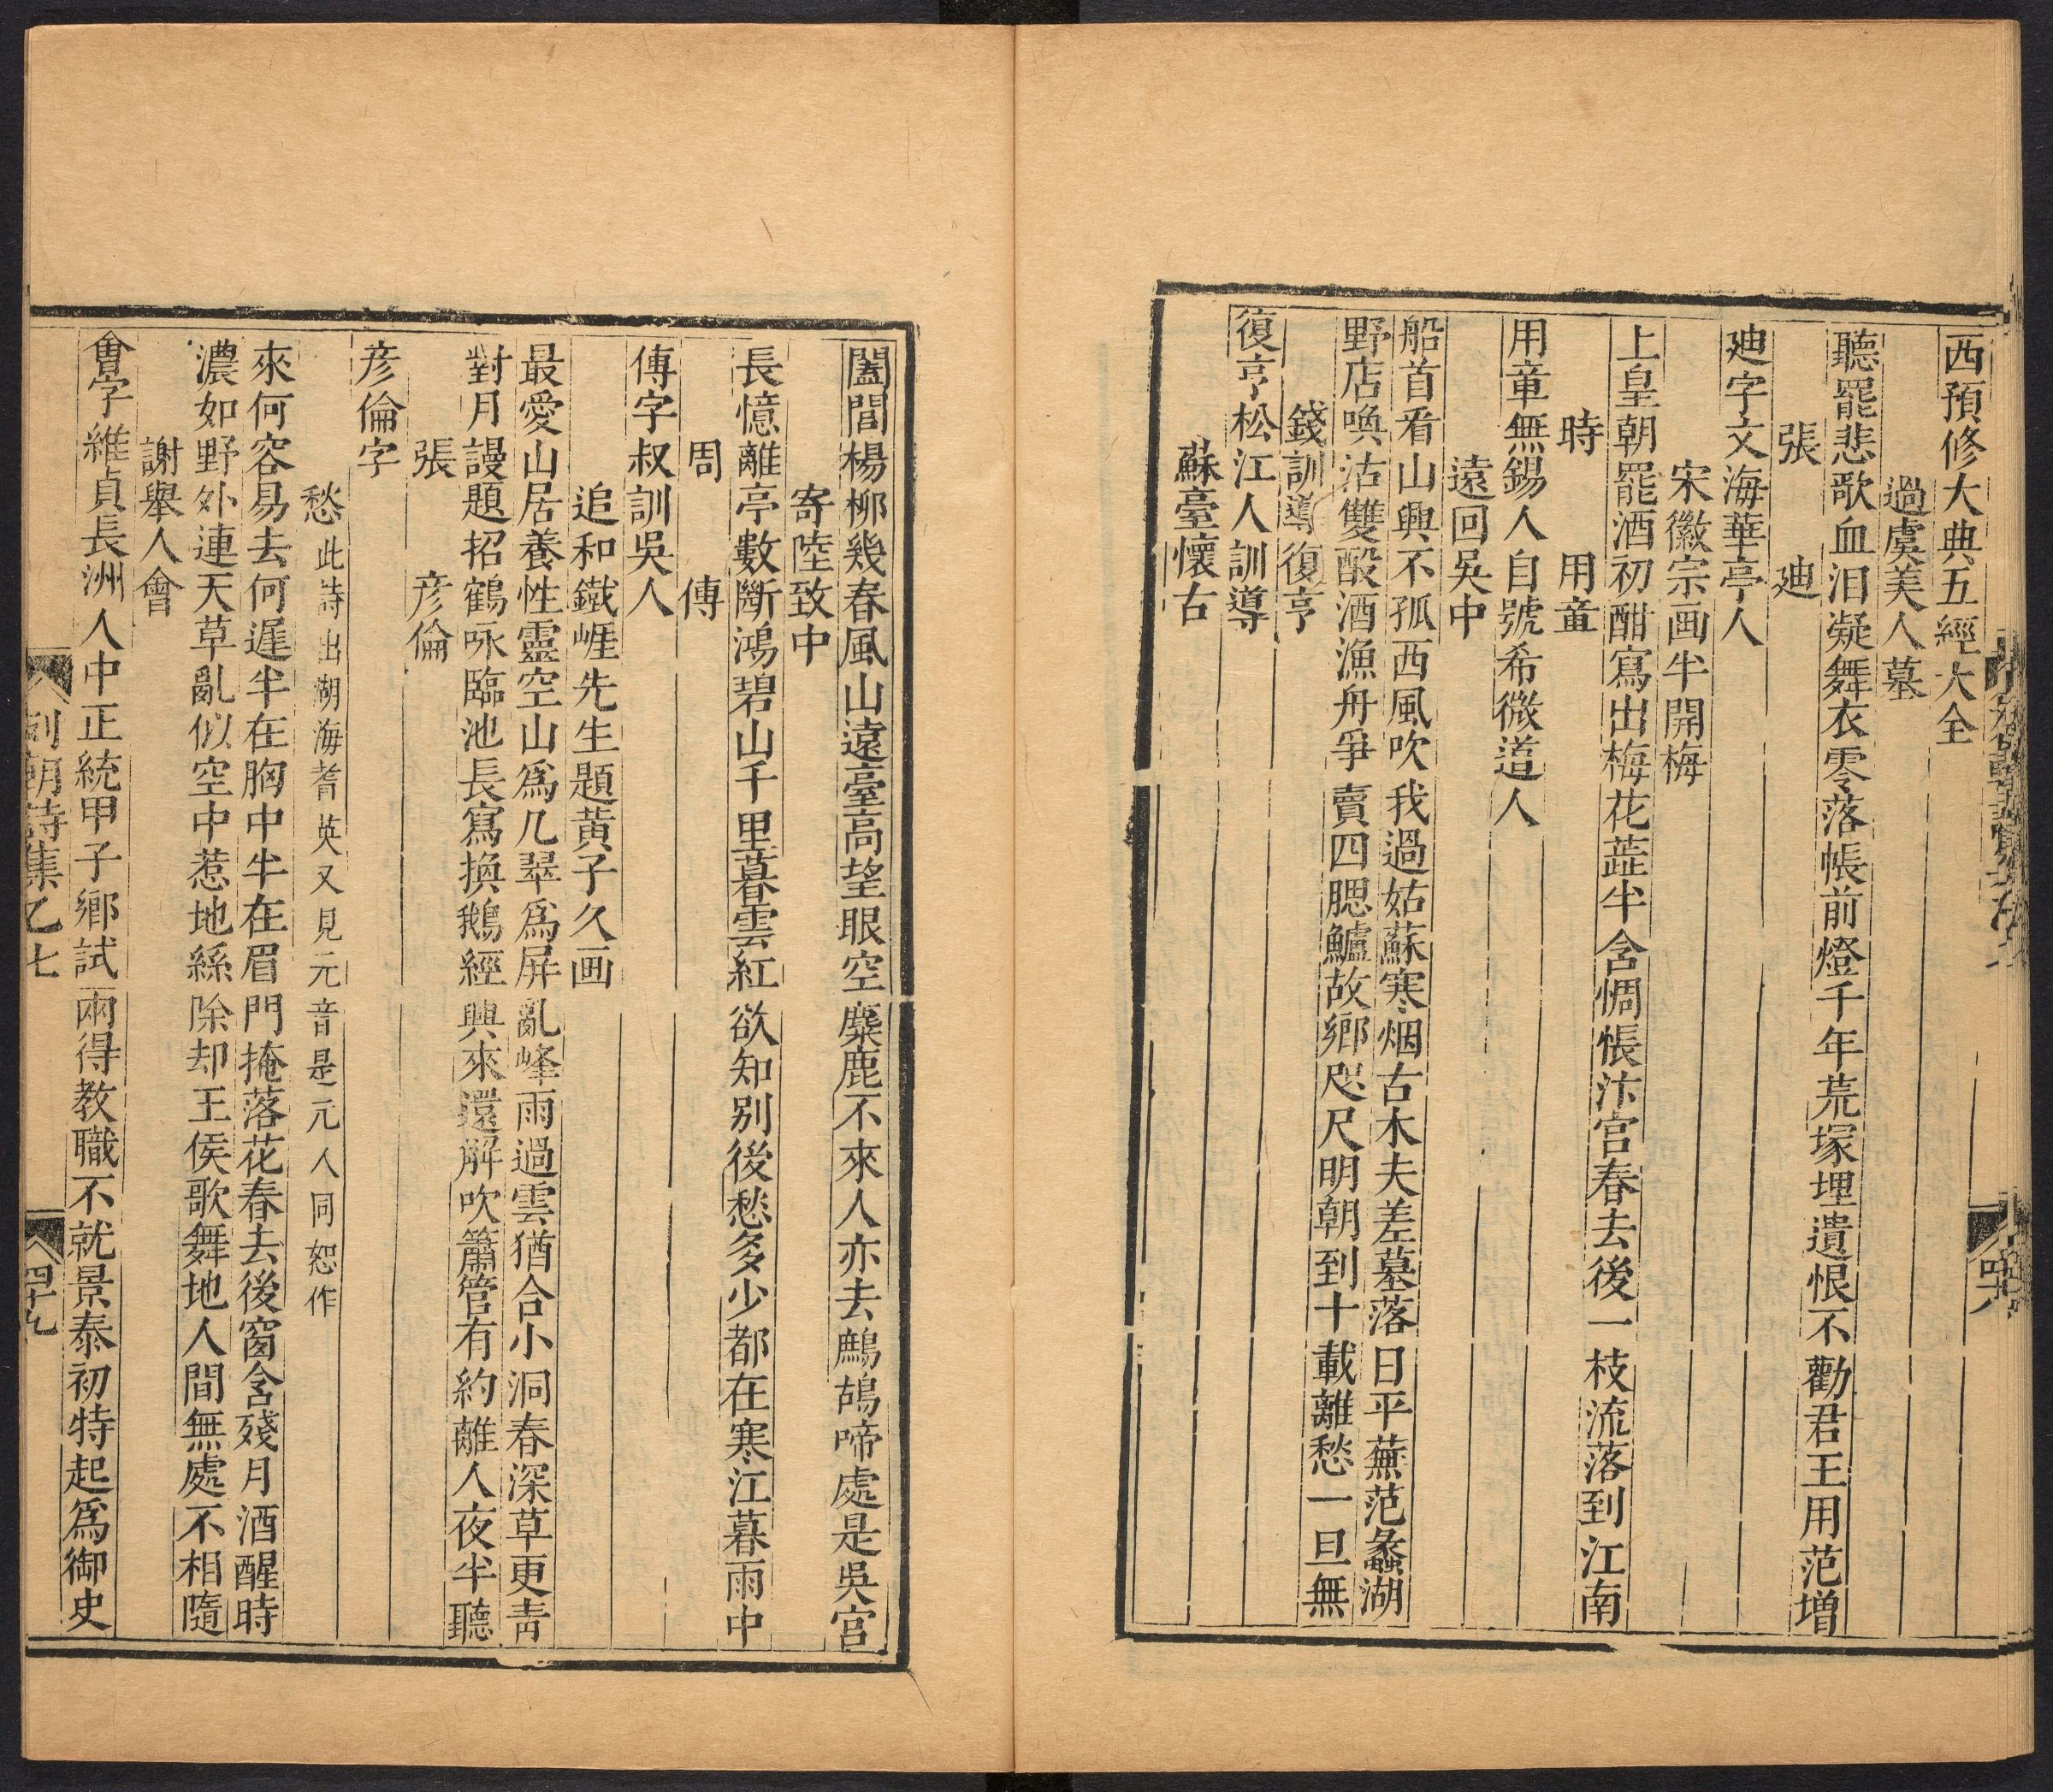 西預修大典五經大全
過虞美人墓
聽罷悲歌血泪凝舞衣零落帳前燈千年荒塚埋遺恨不勸君王用范增
張　廸
廸字文海華亭人
宋徽宗画半開梅
上皇朝罷酒初酣寫出梅花蕋半含惆悵汴宮春去後一枝流落到江南
時　用章
用章無錫人自號希微道人
遠回吳中
船首看山興不孤西風吹我過姑蘇寒烟古木夫差墓落日平蕪范蠡湖
野店喚沽雙醱酒漁舟爭賣四腮鱸故鄉咫尺明朝到十載離愁一旦無
錢訓導復亨
復亨松江人訓導
蘇臺懷古
闔閭楊柳幾春風山遠臺高望眼空麋鹿不來人亦去鷓鴣啼處是吳宮
寄陸致中
長憶離亭數斷鴻碧山千里暮雲紅欲知別後愁多少都在寒江暮雨中
周　傳
傳字叔訓吳人
追和鐵崕先生題黃子久画
最愛山居養性靈空山爲几翠爲屏亂峰雨過雲猶合小洞春深草更青
對月謾題招鶴咏臨池長寫換鵝經興來還解吹簫管有約離人夜半聽
張　彥倫
彥倫字
愁此詩出湖海耆英又見元音是元人同恕作
來何容易去何遲半在胸中半在眉門掩落花春去後窗含殘月酒醒時
濃如野外連天草亂似空中惹地絲除却王侯歌舞地人間無處不相隨
謝舉人會
會字維貞長洲人中正統甲子鄉試兩得教職不就景泰初特起爲御史
列朝詩集乙七
四十九